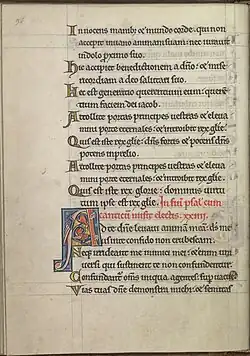 Innocens manib; & mundo corde. qui non
accepit in vano animam suam: nec iuravit
in dolo proximo suo.
Hic accipiet benedictionem a dño: & mise
ricordiam a deo salutari suo.
Hec est generatio querentium eum: queren
tium faciem dei iacob.
Attollite portas principes vestras & eleva
mini porte eternales: & introibit rex glie:
Quis est iste rex glorie: dñs fortis & potens dñs
potens in prelio.
Attollite portas principes vestras & eleva
mini porte eternales: & introibit rex glie.
Quis est iste rex glorie: dominus virtu
tum ipse est rex glie.
Ad te dñe levavi animã meã: ds me
us in te confido non erubescam.
Neq; irrideant me inimici mei: & enim uni
versi qui sustinent te non confundentur.
Confundant oms iniqua agentes: supervacue
Vias tuas dñe demonstra michi: & semitas